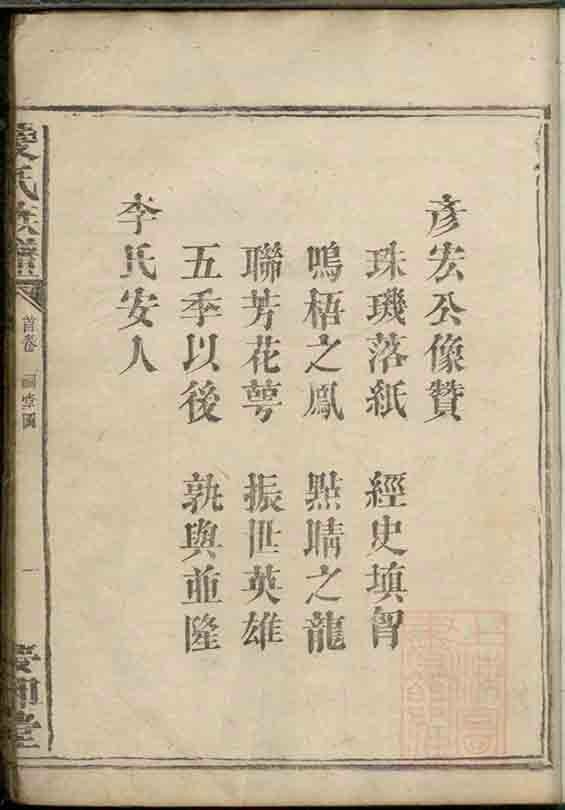 彥宏公像贊
珠璣落紙 經史填胷
鳴梧之鳳 點睛之龍
聯芳花萼 振世英雄
五季以後 孰與並隆
李氏安人
氏族譜
首卷 祠堂圖
一
堂